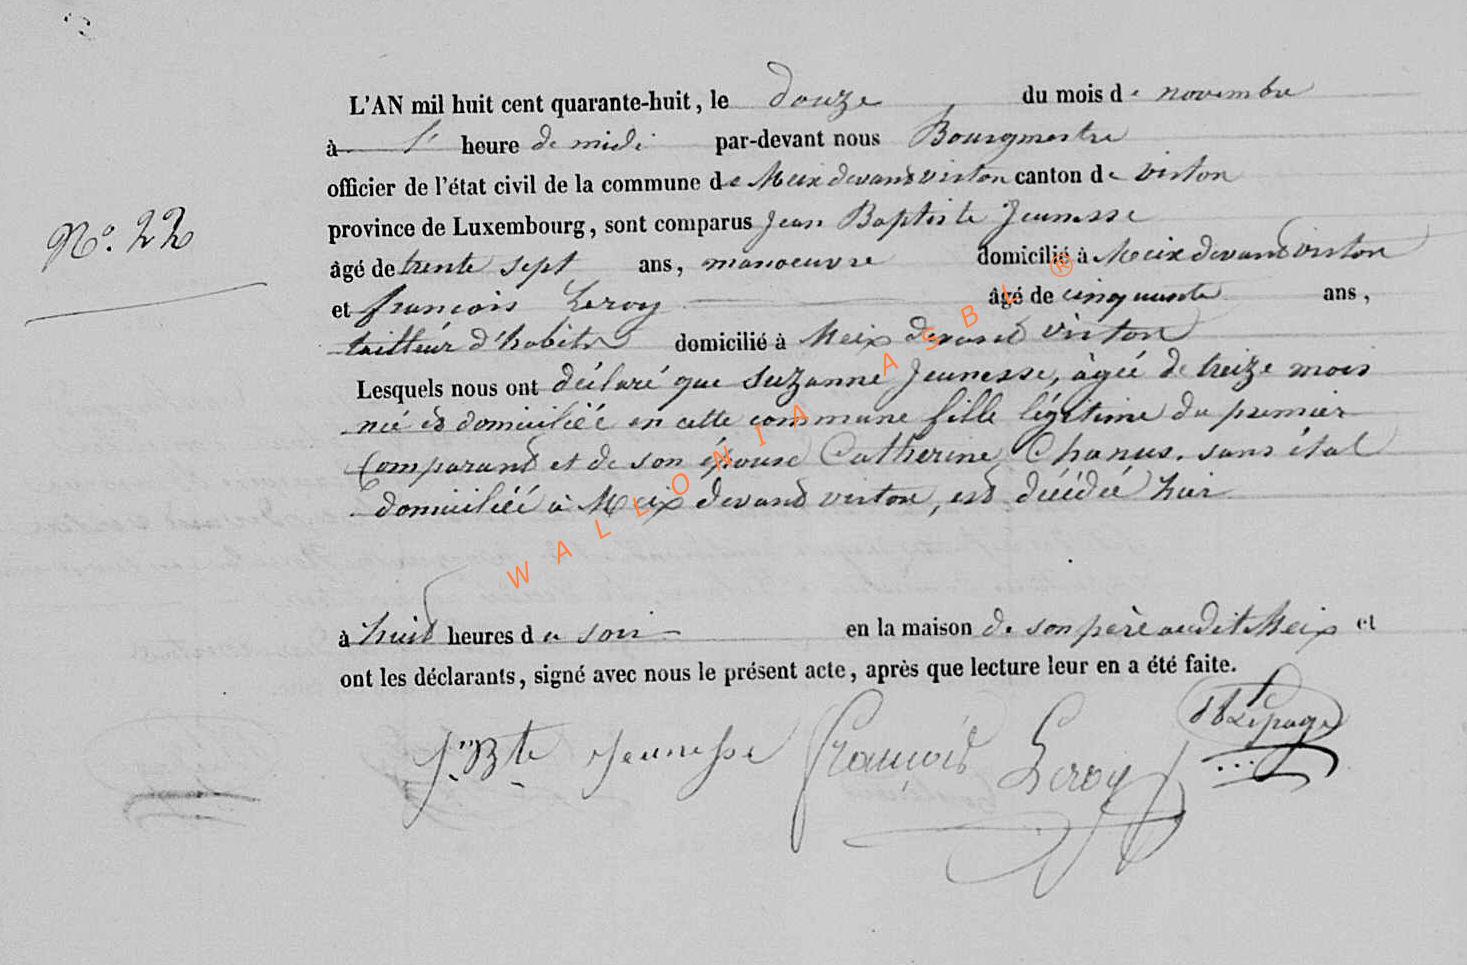 L'AN mil huit cent quarante-huit, le douze du mois de novembre
à l' heure de midi par-devant nous Bourgmestre
officier de l'état civil de la commune de Meixdevandvirton canton de virton
N°. 22
province de Luxembourg, sont comparus Jean Baptiste Jeunesse
âgé de trente sept ans, manoeuvre domicilié à Meixdevandvirton
et françois Leroy âgé de cinquante ans,
tailleur d'habits domicilié à Meix devand virton
Lesquels nous ont déclaré que Suzanne Jeunesse, àgéé de treize mois
néé et domiciliéé en cette commune fille légitime du premier
Comparand et de son épouse Catherine Chanus. sans état
domiciliéé à Meix devand virton, est décédéé hier
à huid heures du soir en la maison de son père audit Meix et
ont les déclarants, signé avec nous le présent acte, après que lecture leur en a été faite.
J.n Bte Jeunesse François Leroy Lepage
WALLONIA ASBL ®